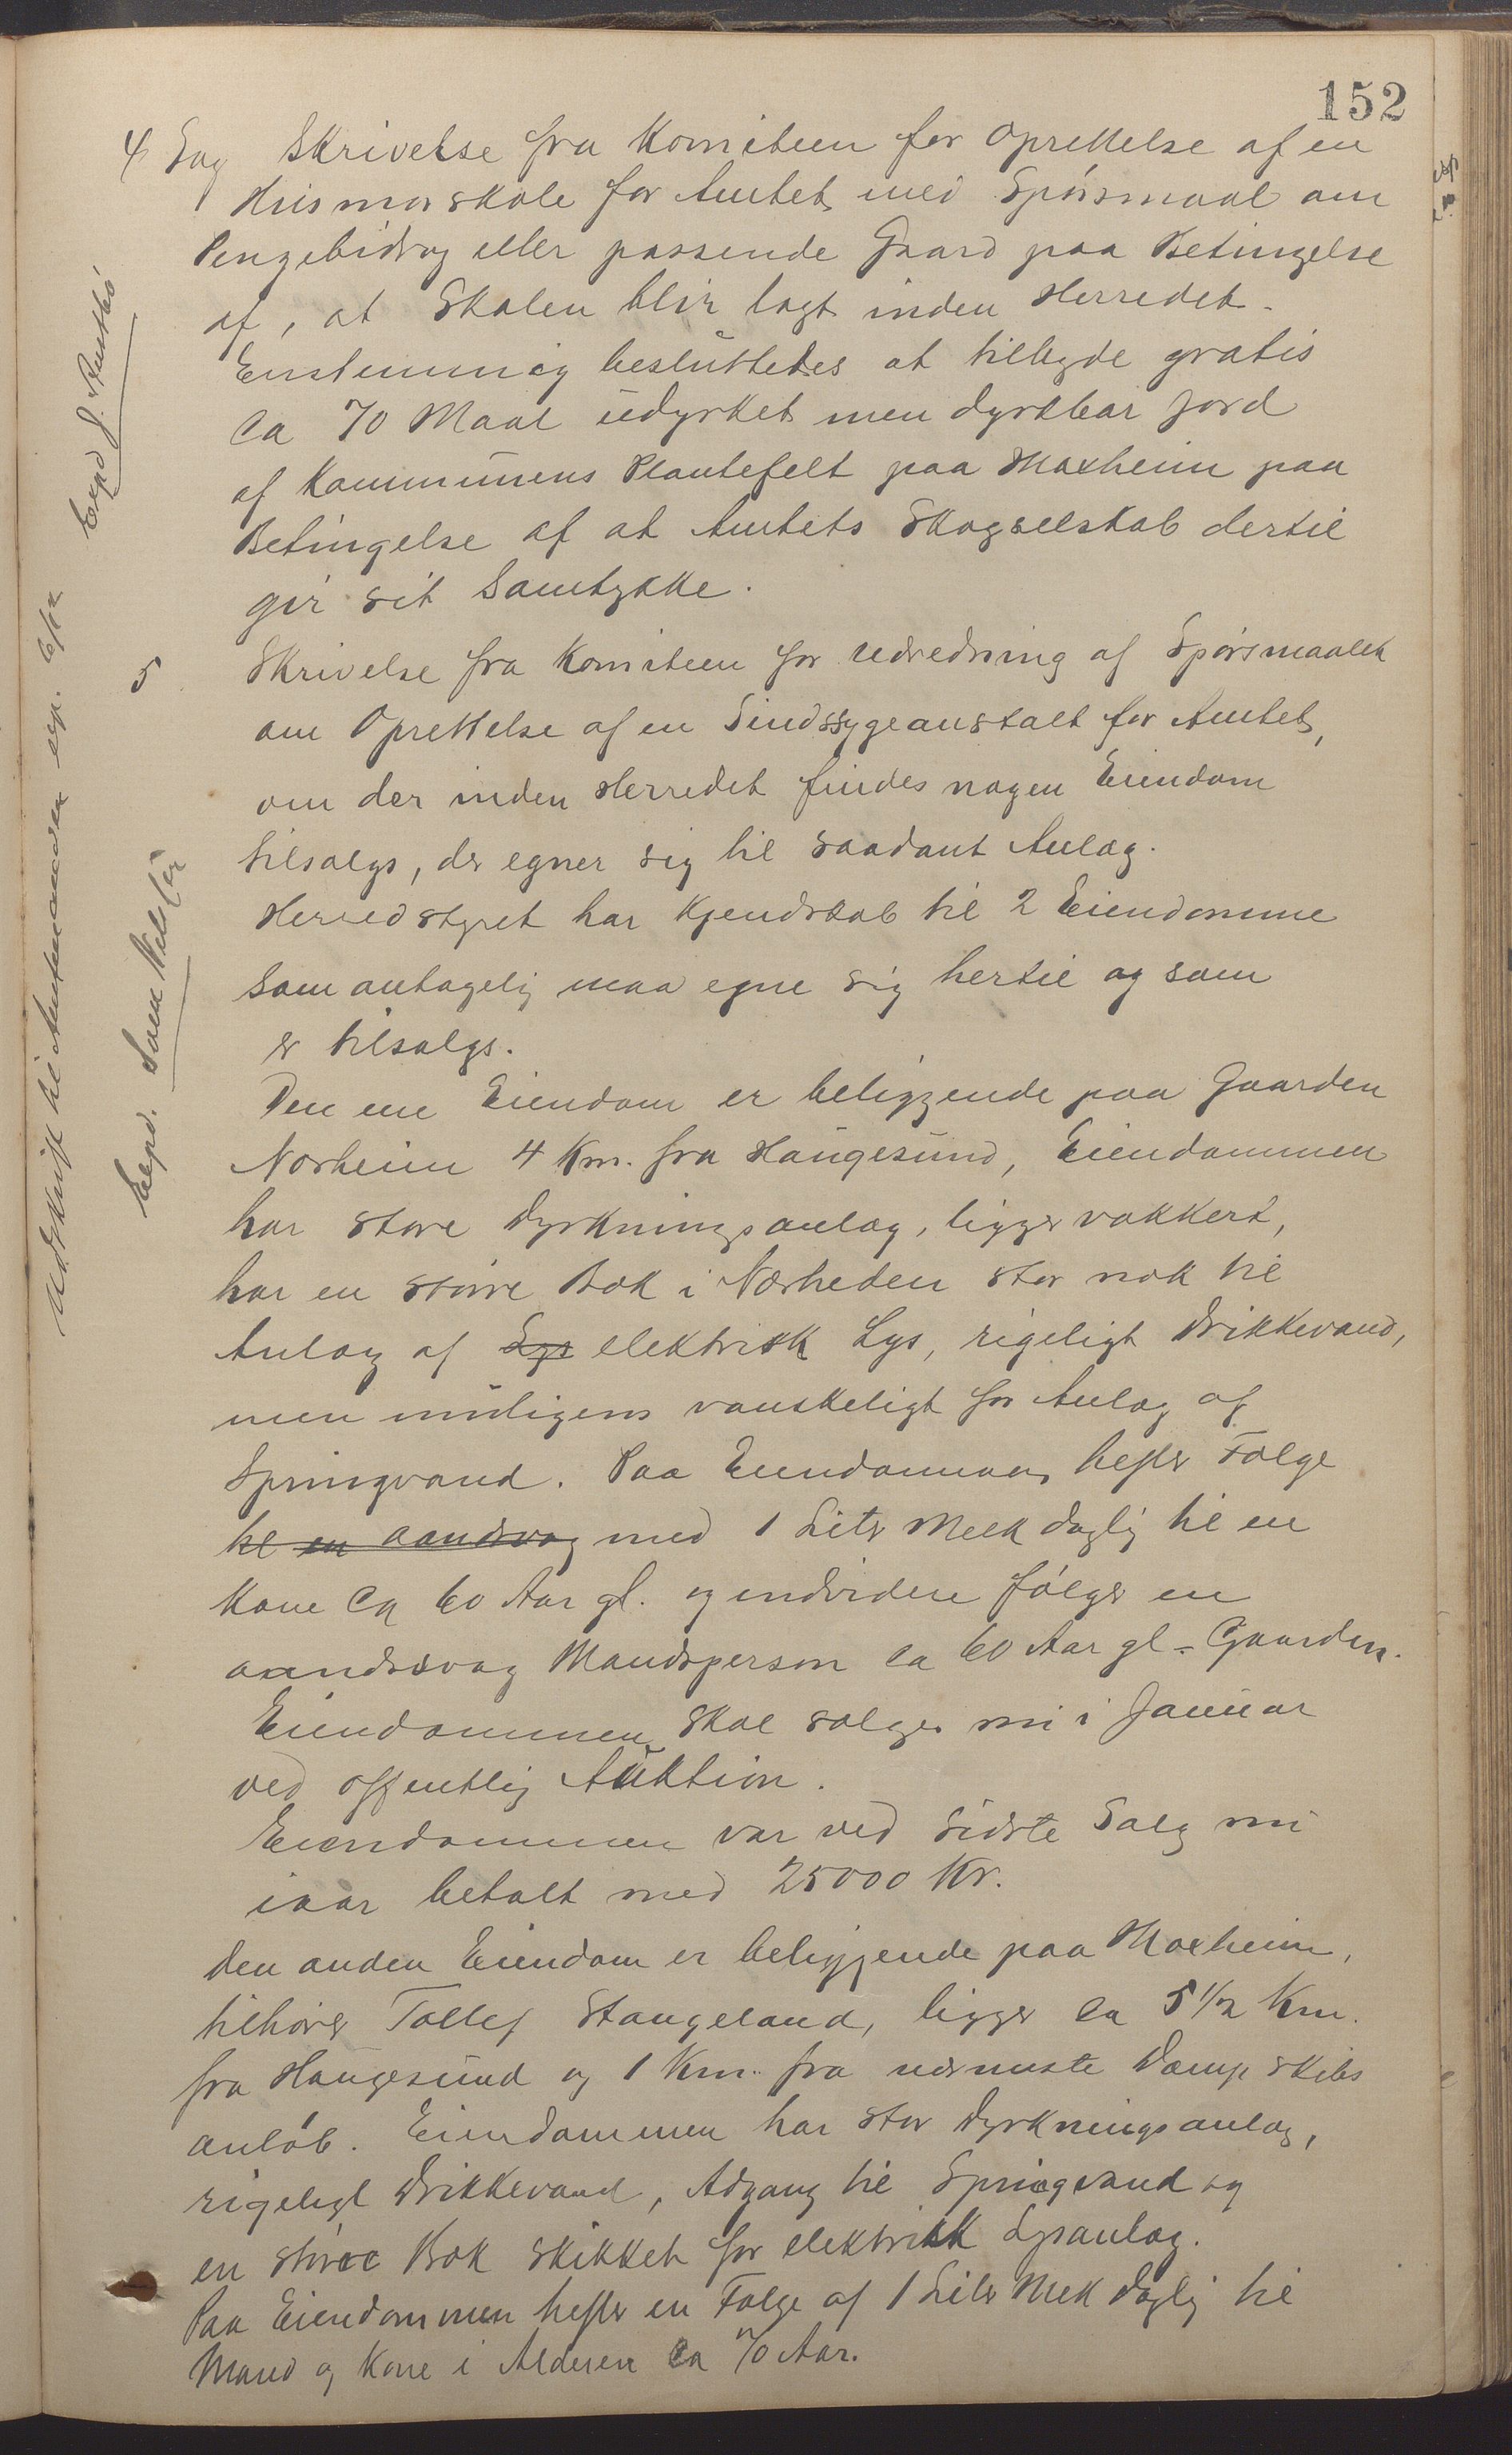 152
4 Sag Skrivelse fra Komiteen for Oprettelse af en
Husmorskole for Amtet med Spørsmaal om
Pengebidrag eller passende Gaard paa Betingelse
af, at Skolen blir lagt inden Herredet.
Enstemmig besluttedes at tilbyde gratis
Ca 70 Maal udyrket men dyrkbar Jord
af Kommunens Plantefelt paa Moxheim paa
Betingelse af at Amtets Skogselskab dertil
gir sit Samtykke.
5 Skrivelse fra Komiteen for Udredning af Spørsmaalet
om Oprettelse af en Sindssygeanstalt for Amtet,
om der inden Herredet findes nogen Eiendom
tilsalgs, der egner sig til saadant Anlæg.
Herredstyret har Kjendskab til 2 Eiendomme
som antagelig maa egne sig hertil og som
er tilsalgs.
Den ene Eiendom er beliggende paa Gaarden
Norheim 4 Km. fra Haugesund, Eiendommen
har store Dyrkningsanlæg, ligger vakkert,
har en større Bæk i Nærheden stor nok til
Anlæg af Lys elektrisk Lys, rigeligt Drikkevand,
men muligens vanskeligt for Anlæg af
Springvand. Paa Eiendommen hefter Følge
til en aandsvag med 1 Liter Melk daglig til en
Kone Ca 60 Aar gl. og endvidere følger en
aandssvag Mandsperson ca 60 Aar gl = Gaarden.
Eiendommen skal sælges nu i Januar
ved offentlig Auktion.
Eiendommen var ved sidste Salg nu
iaar betalt med 25000 Kr.
Den anden Eiendom er beliggende paa Moxheim,
tilhører Tollef Stangeland, ligger ca 5 1/2 Km.
fra Haugesund og 1 Km. fra nærmeste Dampskibs
anløb. Eiendommen har stor Dyrkningsanlæg,
rigeligt Drikkevand, Adgang til Springvand og
en større Bæk skikket for elektrisk Lysanlæg.
Paa Eiendommen hefter en Følge af 1 Liter Melk daglig til
Mand og Kone i Alderen Ca 70 Aar.
Udskrift til Amtmanden exp. 6/12
Expd
Expd.